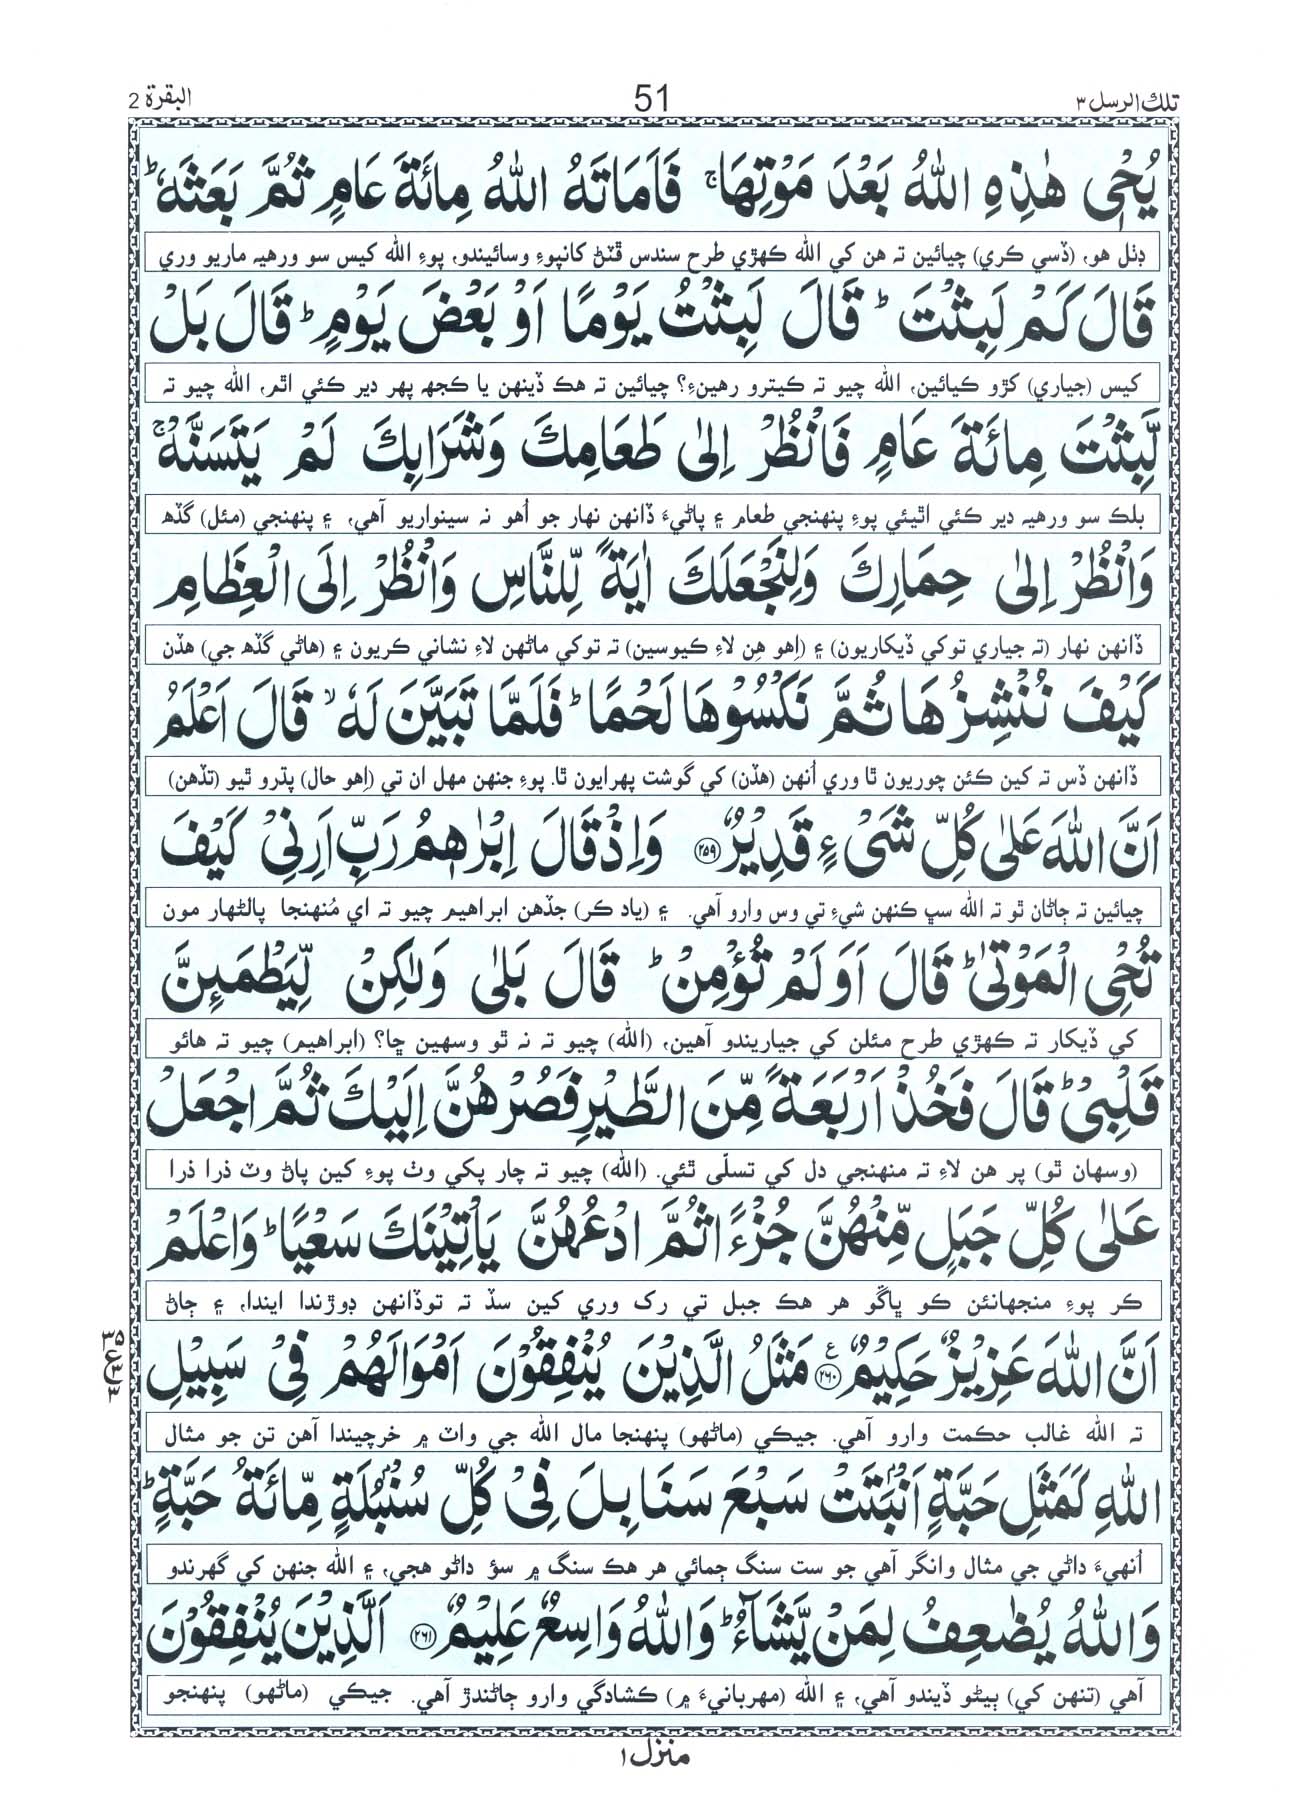 تلك الرسل ٣
51
البقرة 2
يُحْيٖ هٰذِهِ اللّٰهُ بَعْدَ مَوْتِهَا ۚ فَاَمَاتَهُ اللّٰهُ مِائَةَ عَامٍ ثُمَّ بَعَثَهٗ ؕ
ڊٺل هو، (ڏسي ڪري) چيائين ته هن کي الله ڪهڙي طرح سندس ڦٽڻ کانپوءِ وسائيندو، پوءِ الله کيس سو ورهيه ماريو وري
قَالَ كَمْ لَبِثْتَ ؕ قَالَ لَبِثْتُ يَوْمًا اَوْ بَعْضَ يَوْمٍ ؕ قَالَ بَلْ
کيس (جياري) کڙو ڪيائين، الله چيو ته ڪيترو رهينءِ؟ چيائين ته هڪ ڏينهن يا ڪجهه پهر دير ڪئي اٿم، الله چيو ته
لَّبِثْتَ مِائَةَ عَامٍ فَانْظُرْ اِلٰى طَعَامِكَ وَشَرَابِكَ لَمْ يَتَسَنَّهْ ۚ
بلڪ سو ورهيه دير ڪئي اٿيئي پوءِ پنهنجي طعام ۽ پاڻيءَ ڏانهن نهار جو اُهو نه سينواريو آهي، ۽ پنهنجي (مئل) گڏهه
وَانْظُرْ اِلٰى حِمَارِكَ وَلِنَجْعَلَكَ اٰيَةً لِّلنَّاسِ وَانْظُرْ اِلَى الْعِظَامِ
ڏانهن نهار (ته جياري توکي ڏيکاريون) ۽ (اِهو هِن لاءِ ڪيوسين) ته توکي ماڻهن لاءِ نشاني ڪريون ۽ (هاڻي گڏهه جي) هڏن
كَيْفَ نُنْشِزُهَا ثُمَّ نَكْسُوْهَا لَحْمًا ؕ فَلَمَّا تَبَيَّنَ لَهٗ ۙ قَالَ اَعْلَمُ
ڏانهن ڏس ته کين ڪئن چوريون ٿا وري اُنهن (هڏن) کي گوشت پهرايون ٿا. پوءِ جنهن مهل ان تي (اِهو حال) پڌرو ٿيو (تڏهن)
اَنَّ اللّٰهَ عَلٰى كُلِّ شَىْءٍ قَدِيْرٌ ﴿٢٥٩﴾ وَاِذْ قَالَ اِبْرٰهٖمُ رَبِّ اَرِنِىْ كَيْفَ
چيائين ته ڄاڻان ٿو ته الله سڀ ڪنهن شيءِ تي وس وارو آهي. ۽ (ياد ڪر) جڏهن ابراهيم چيو ته اي مُنهنجا پالڻهار مون
تُحْىِ الْمَوْتٰى ؕ قَالَ اَوَلَمْ تُؤْمِنْ ؕ قَالَ بَلٰى وَلٰكِنْ لِّيَطْمَىِٕنَّ
کي ڏيکار ته ڪهڙي طرح مئلن کي جياريندو آهين، (الله) چيو ته نه ٿو وسهين ڇا؟ (ابراهيم) چيو ته هائو
قَلْبِىْ ؕ قَالَ فَخُذْ اَرْبَعَةً مِّنَ الطَّيْرِ فَصُرْهُنَّ اِلَيْكَ ثُمَّ اجْعَلْ
(وسهان ٿو) پر هن لاءِ ته منهنجي دل کي تسلّي ٿئي. (الله) چيو ته چار پکي وٺ پوءِ کين پاڻ وٽ ذرا ذرا
عَلٰى كُلِّ جَبَلٍ مِّنْهُنَّ جُزْءًا ثُمَّ ادْعُهُنَّ يَاْتِيْنَكَ سَعْيًا ؕ وَاعْلَمْ
ڪر پوءِ منجهانئن ڪو ڀاڱو هر هڪ جبل تي رک وري کين سڏ ته توڏانهن ڊوڙندا ايندا، ۽ ڄاڻ
اَنَّ اللّٰهَ عَزِيْزٌ حَكِيْمٌ ﴿٢٦٠﴾ ع مَثَلُ الَّذِيْنَ يُنْفِقُوْنَ اَمْوَالَهُمْ فِىْ سَبِيْلِ
ته الله غالب حڪمت وارو آهي. جيڪي (ماڻهو) پنهنجا مال الله جي واٽ ۾ خرچيندا آهن تن جو مثال
اللّٰهِ كَمَثَلِ حَبَّةٍ اَنْۢبَتَتْ سَبْعَ سَنَابِلَ فِىْ كُلِّ سُنْۢبُلَةٍ مِّائَةُ حَبَّةٍ ؕ
اُنهيءَ داڻي جي مثال وانگر آهي جو ست سنگ ڄمائي هر هڪ سنگ ۾ سؤ داڻو هجي، ۽ الله جنهن کي گهرندو
وَاللّٰهُ يُضٰعِفُ لِمَنْ يَّشَآءُ ؕ وَاللّٰهُ وَاسِعٌ عَلِيْمٌ ﴿٢٦١﴾ اَلَّذِيْنَ يُنْفِقُوْنَ
آهي (تنهن کي) ٻيڻو ڏيندو آهي، ۽ الله (مهربانيءَ ۾) ڪشادگي وارو ڄاڻندڙ آهي. جيڪي (ماڻهو) پنهنجو
منزل ١